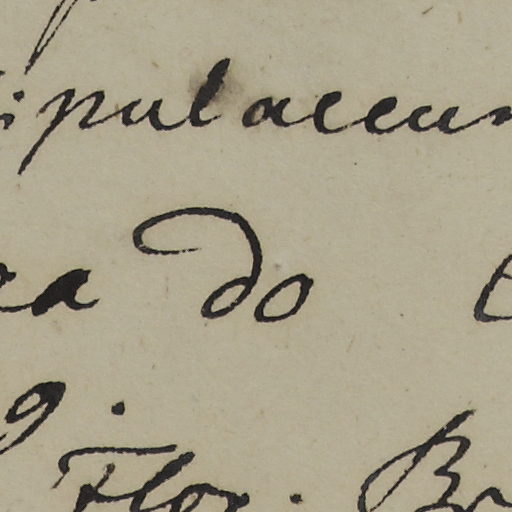 ipulaceum
ea do
9.
Flor. Br